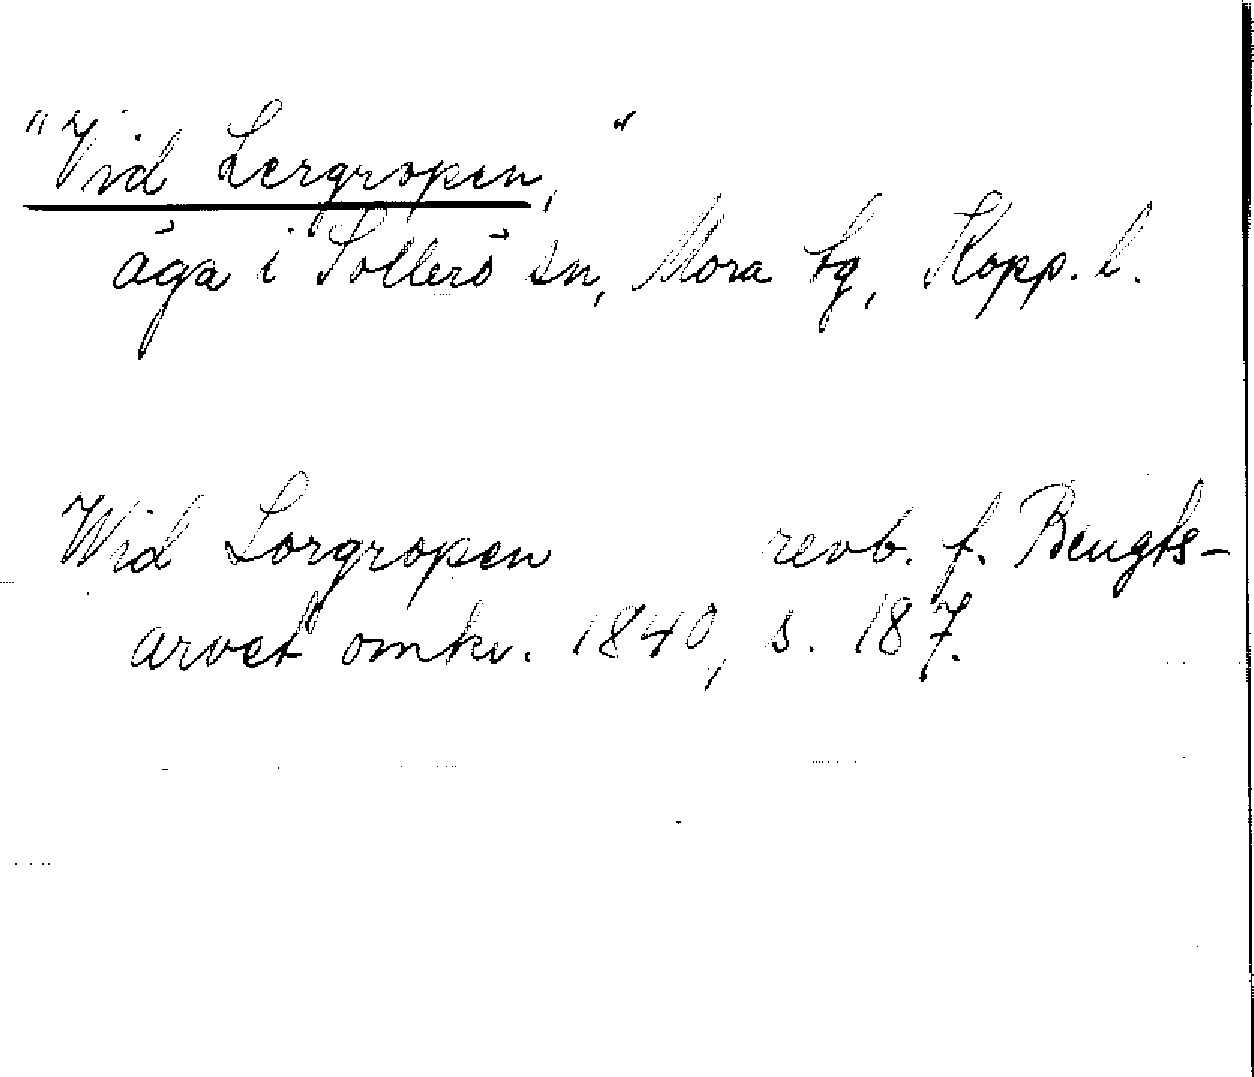 "Vid Lergropen,"
äga i Sollerö sn, Mora tg, Kopp. l.
Wid Lorgropen revb. f. Bengts-
arvet omkr. 1840, s. 187.